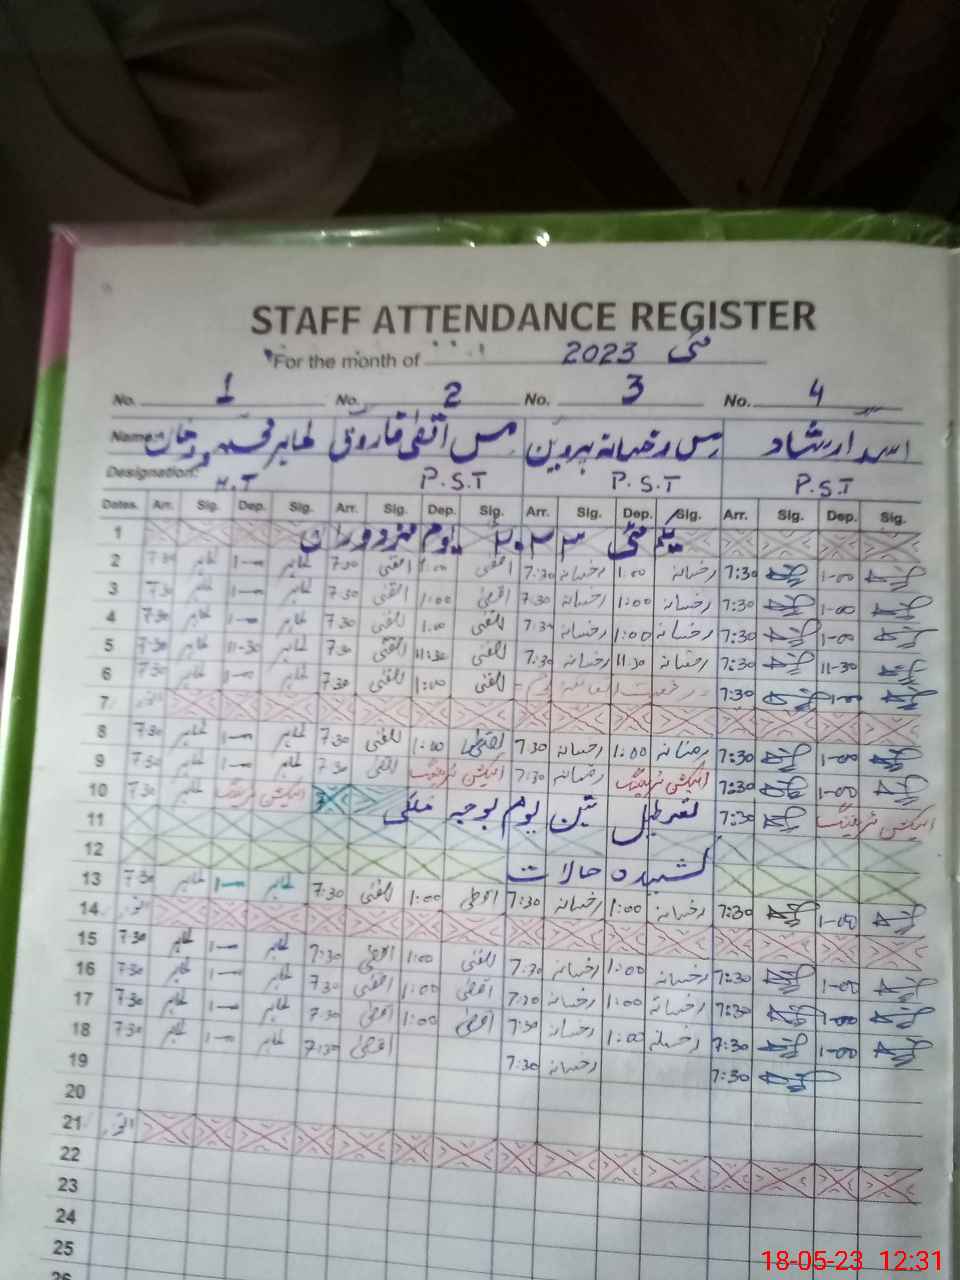 STAFF ATTENDANCE REGISTER
For the month of مئی 2023
No. 1 No. 2 No. 3 No. 4
Name: طاہر محمود خان مس اقصٰی فاروق مس رخسانہ پروین اسد ارشاد
Designation: H.T P.S.T P.S.T P.S.T
Dates. Arr. Sig. Dep. Sig. Arr. Sig. Dep. Sig. Arr. Sig. Dep. Sig. Arr. Sig. Dep. Sig.
1 یکم مئی ۲۰۲۳ یوم مزدوراں
2 7:30 طاہر 1-00 طاہر 7:30 اقصٰی 1:00 اقصٰی 7:30 رخسانہ 1:00 رخسانہ 7:30 1-00
3 7:30 طاہر 1-00 طاہر 7:30 اقصٰی 1:00 اقصٰی 7:30 رخسانہ 1:00 رخسانہ 7:30 1-00
4 7:30 طاہر 1-00 طاہر 7:30 اقصٰی 1:00 اقصٰی 7:30 رخسانہ 1:00 رخسانہ 7:30 1-00
5 7:30 طاہر 11-30 طاہر 7:30 اقصٰی 11:30 اقصٰی 7:30 رخسانہ 11:30 رخسانہ 7:30 11-30
6 7:30 طاہر 1-00 طاہر 7:30 اقصٰی 1:00 اقصٰی رخصت اتفاقیہ 7:30 1-00
7 اتوار
8 7:30 طاہر 1-00 طاہر 7:30 اقصٰی 1:00 اقصٰی 7:30 رخسانہ 1:00 رخسانہ 7:30 1-00
9 7:30 طاہر 1-00 طاہر 7:30 اقصٰی الیکشن ٹریننگ 7:30 رخسانہ الیکشن ٹریننگ 7:30 1-00
10 7:30 طاہر الیکشن ٹریننگ 7:30 الیکشن ٹریننگ
11 تعطیل تین یوم بوجہ ملکی
12 کشیدہ حالات
13 7:30 طاہر 1-00 طاہر 7:30 اقصٰی 1:00 اقصٰی 7:30 رخسانہ 1:00 رخسانہ 7:30 1-00
14 اتوار
15 7:30 طاہر 1-00 طاہر 7:30 اقصٰی 1:00 اقصٰی 7:30 رخسانہ 1:00 رخسانہ 7:30 1-00
16 7:30 طاہر 1-00 طاہر 7:30 اقصٰی 1:00 اقصٰی 7:30 رخسانہ 1:00 رخسانہ 7:30 1-00
17 7:30 طاہر 1-00 طاہر 7:30 اقصٰی 1:00 اقصٰی 7:30 رخسانہ 1:00 رخسانہ 7:30 1-00
18 7:30 طاہر 1-00 طاہر 7:30 اقصٰی 7:30 رخسانہ 7:30
19
20
21 اتوار
22
23
24
25
26
18-05-23 12:31